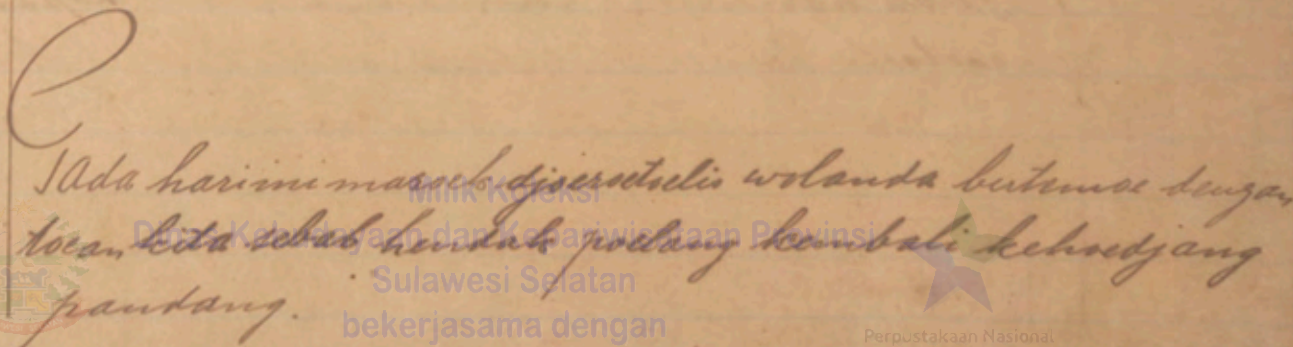 Pada harini masoek djoeroetoelis wolanda butemoe dengan
toean kita sebab hendak poelang kembali kehoedjang
pandang.
Milik Koleksi
Dinas Kebudayaan dan Kepariwisataan Provinsi
Sulawesi Selatan
bekerjasama dengan
Perpustakaan Nasional